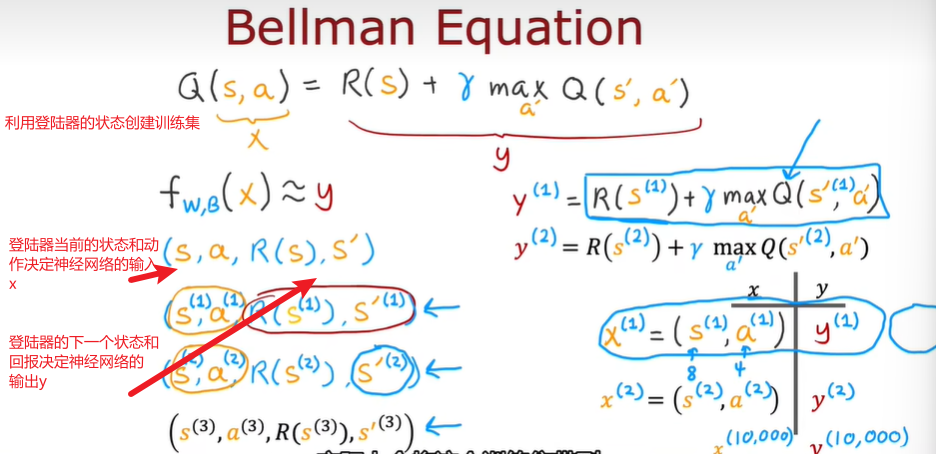 Bellman Equation
Q(s,a) = R(s) + γ max Q(s′,a′)
a′
x
y
利用登陆器的状态创建训练集
f_{W,B}(x) ≈ y
登陆器当前的状态和动
作决定神经网络的输入
x
(s,a,R(s),s′)
(s^(1),a^(1),R(s^(1)),s′^(1)) ←
登陆器的下一个状态和
回报决定神经网络的
输出y
(s^(2),a^(2),R(s^(2)),s′^(2)) ←
(s^(3),a^(3),R(s^(3)),s′^(3)) ←
y^(1) = R(s^(1)) + γ max Q(s′^(1),a′)
a′
y^(2) = R(s^(2)) + γ max Q(s′^(2),a′)
a′
x y
x^(1) = (s^(1),a^(1)) y^(1)
8 4
x^(2) = (s^(2),a^(2)) y^(2)
x^(10,000) y^(10,000)